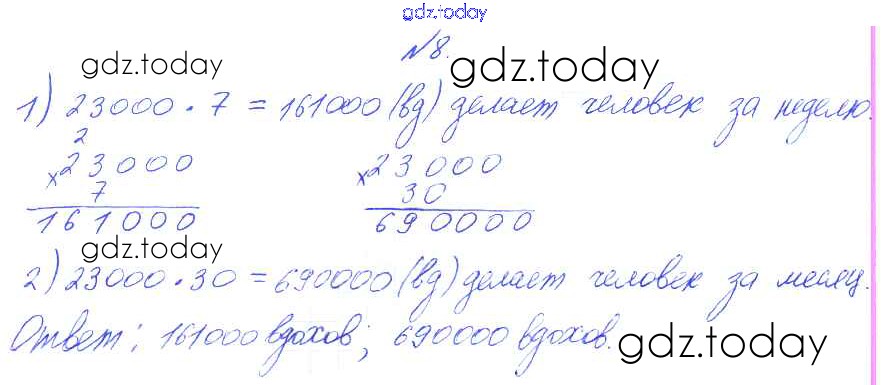 gdz.today
№8.
gdz.today gdz.today
1) 23000 · 7 = 161000 (вд) делает человек за неделю.
2
×23000 ×23000
7 30
161000 690000
gdz.today
2) 23000 · 30 = 690000 (вд) делает человек за месяц.
Ответ: 161000 вдохов; 690000 вдохов.
gdz.today